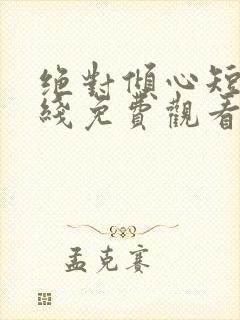 絕對傾心短
綫免費觀看
孟克賽